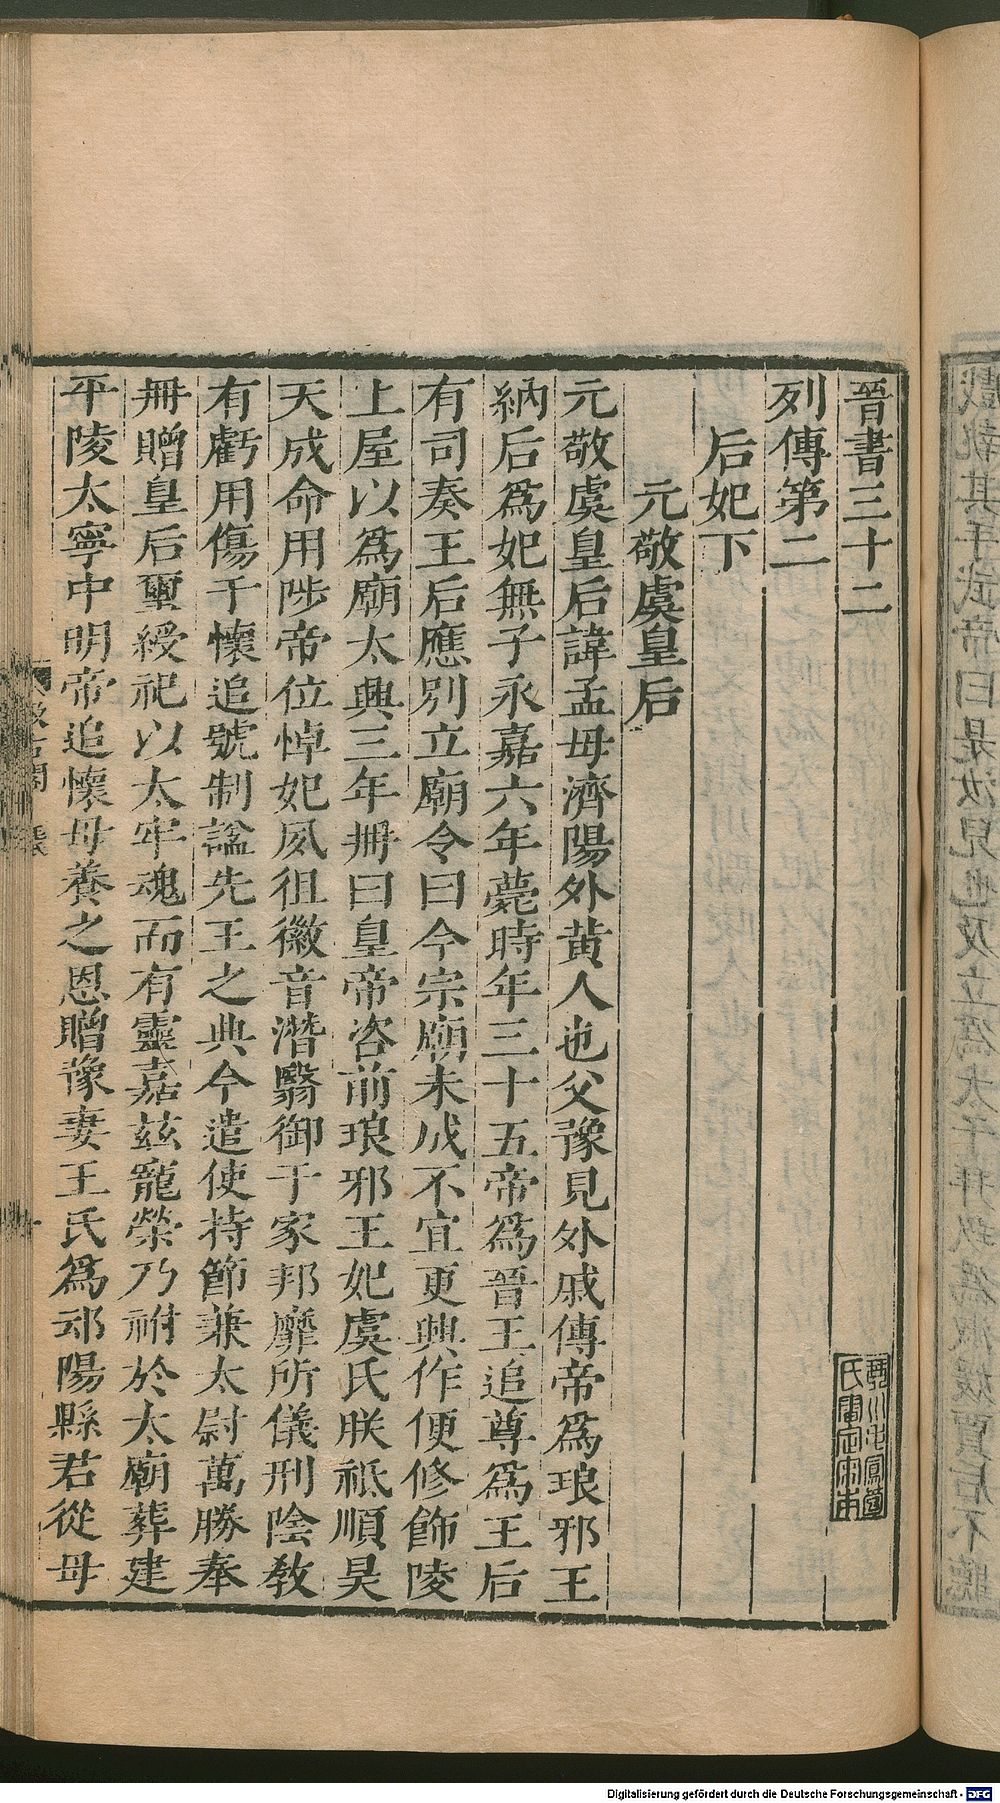 晉書三十二
列傳第二
后妃下
元敬虞皇后
元敬虞皇后諱孟母濟陽外黃人也父豫見外戚傳帝爲琅邪王
納后爲妃無子永嘉六年薨時年三十五帝爲晉王追尊爲王后
有司奏王后應別立廟令曰今宗廟未成不宜更興作便修飾陵
上屋以爲廟太興三年冊曰皇帝咨前琅邪王妃虞氏朕祗順昊
天成命用陟帝位悼妃夙徂徽音潛翳御于家邦靡所儀刑陰敎
有虧用傷于懷追號制諡先王之典今遣使持節兼太尉萬勝奉
冊贈皇后璽綬祀以太牢魂而有靈嘉茲寵榮乃祔於太廟葬建
平陵太寧中明帝追懷母養之恩贈豫妻王氏爲邧陽縣君從母
汲古閣
Digitalisierung gefördert durch die Deutsche Forschungsgemeinschaft - DFG